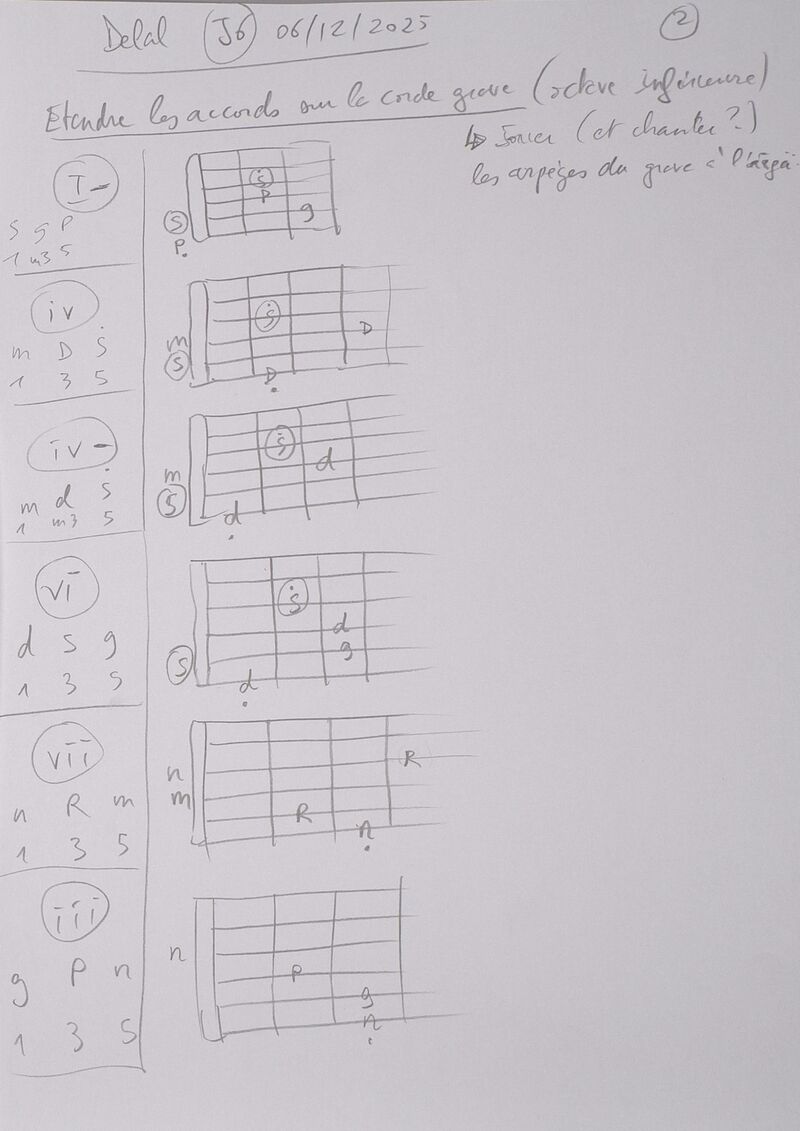 Delal J6 06/12/2025 2
Etendre les accords sur la corde grave (octave inférieure)
↳ Jouer (et chanter ?)
les arpèges du grave à l'aigü.
I-
S g P
1 m3 5
S
P
Ṡ
P
g
iv
m D Ṡ
1 3 5
m
S
Ṡ
D
Ḍ
iv-
m d Ṡ
1 m3 5
m
S
Ṡ
d
ḍ
vi
d S g
1 3 5
S
Ṡ
d
g
ḍ
vii
n R m
1 3 5
n
m
R
R
ṇ
iii
g P n
1 3 5
n
P
g
ṇ